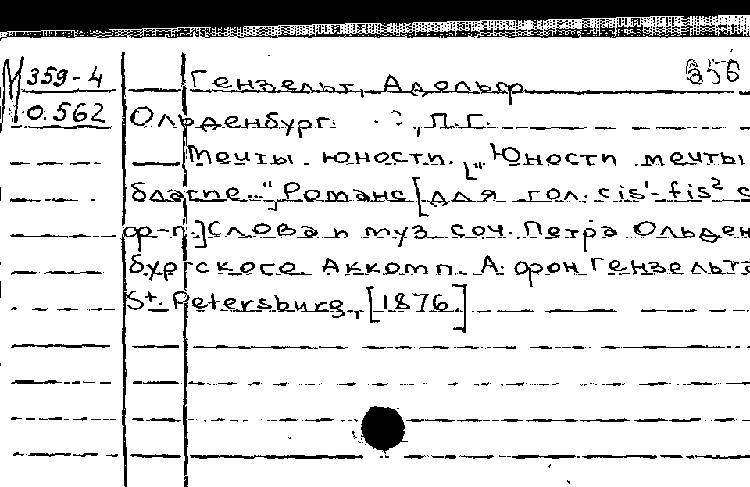 М 359-4 Гензельт, Адольф 356
0.562 Ольденбург ?, П.Г.
Мечты юности. ["Юности мечты
благие...", Романс [для гол. cis¹-fis² с
ф-п.] Слова и муз. соч. Петра Ольден
бургского. Аккомп. А. фон Гензельта
St. Petersburg, [1876]